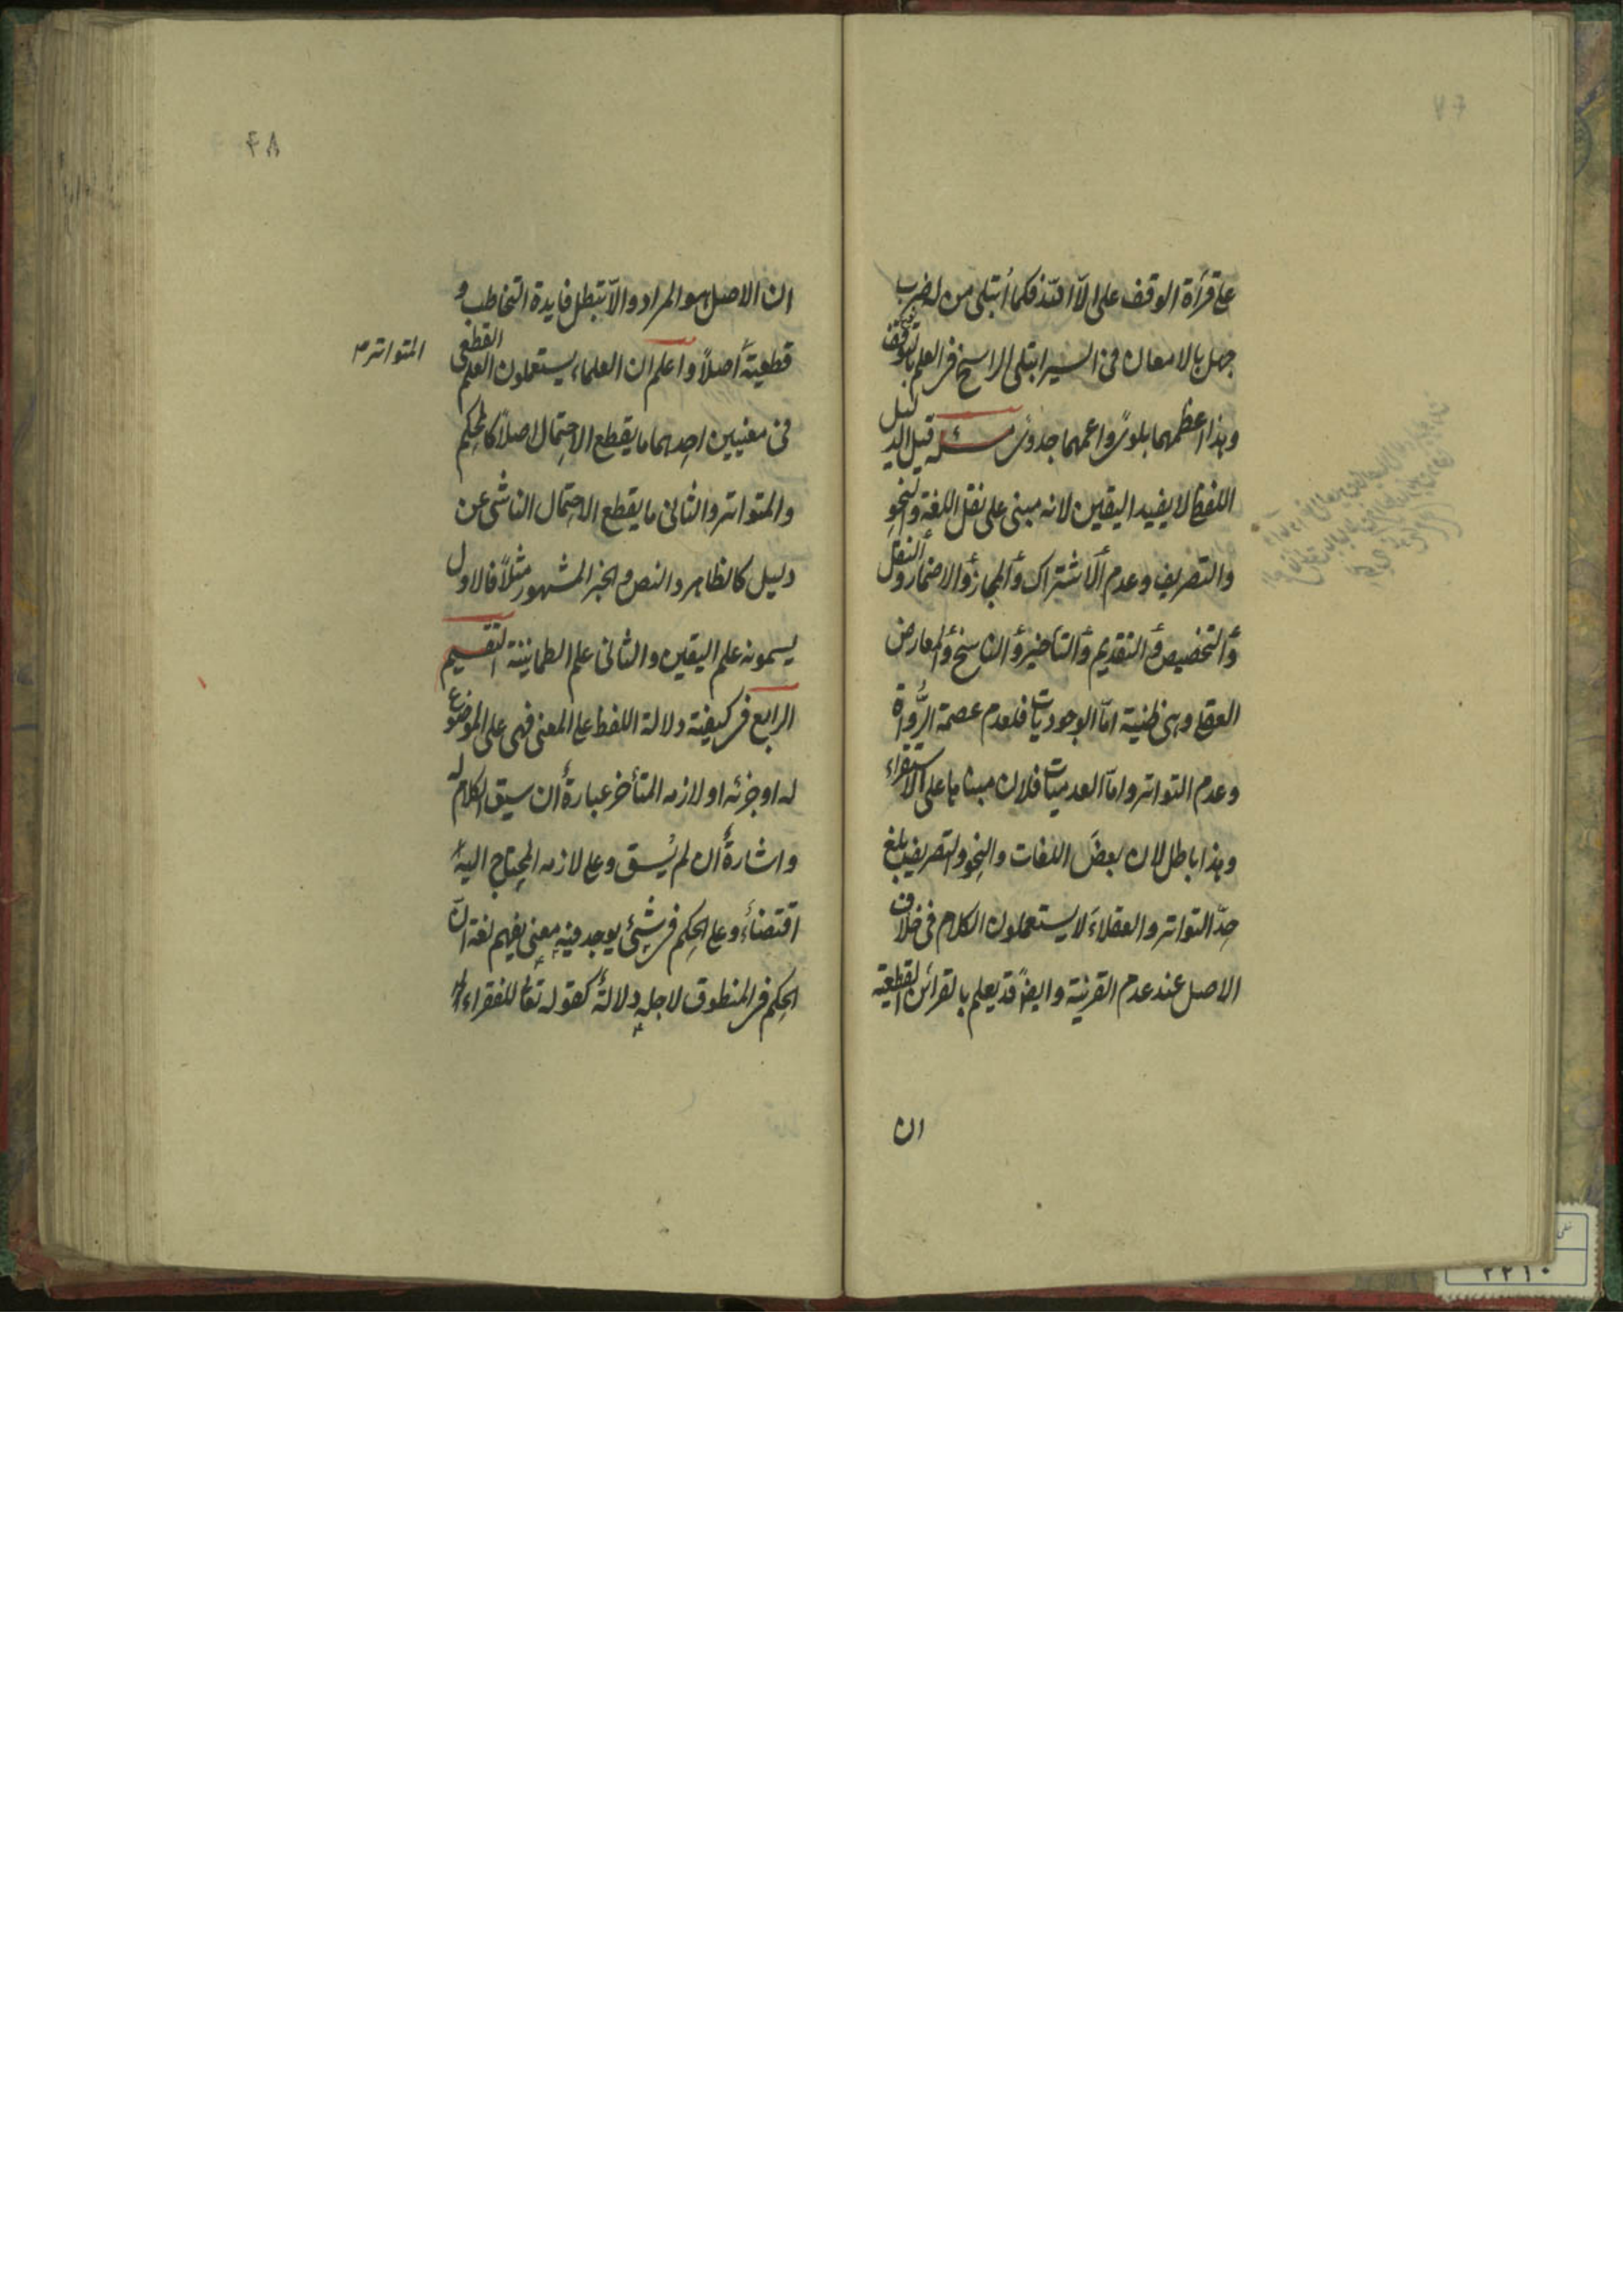 على قرأة الوقف على الا الله فكما ابتلى من له ضرب
جهل بالامعان فى السير ابتلى الراسخ فى العلم بالتوقف
وهذا اعظمهما بلوىً واعمهما جدوى مسئله قيل الدليل
اللفظى لا يفيد اليقين لانه مبنى على نقل اللغة والنحو
والتصريف وعدم الاشتراك والمجاز والاضمار والنقل
والتخصيص والتقديم والتأخير والناسخ والمعارض
العقلى وهى ظنية امّا الوجوديات فلعدم عصمة الرُّواة
وعدم التواتر وامّا العدميات فلان مبناها على الاستقراء
وهذا باطل لان بعضَ اللغات والنحو والتصريف بلغ
حدّ التواتر والعقلاءَ لا يستعملون الكلام فى خلاف
الاصل عند عدم القرينة وايضًا قد يعلم بالقرائن القطعية
ان
۴۸
ان الاصل هو المراد والاّ تبطل فايدة التخاطب و
قطعيةُ المتواتر اصلاً واعلم ان العلماء يستعملون العلم القطعى
فى معنيين احدهما ما يقطع الاحتمال اصلاً كالمحكم
والمتواتر والثانى ما يقطع الاحتمال الناشى عن
دليل كالظاهر والنص والخبر المشهور مثلاً فالاول
يسمونه علم اليقين والثانى علم الطمانينة التقسيم
الرابع فى كيفية دلالة اللفظ على المعنى فهى على الموضوع
له او جزئه او لازمه المتأخر عبارةٌ ان سيق الكلام له
واشارةٌ ان لم يُسق وعلى لازمه المحتاج اليه
اقتضاءٌ وعلى الحكم فى شئ يوجد فيه معنى يفهم لغة ان
الحكم فى المنطوق لاجله دلالةٌ كقوله تعا للفقراء